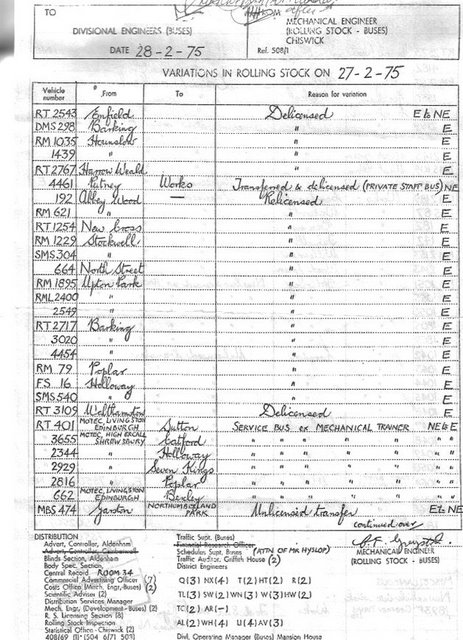 TO
FROM
DIVISIONAL ENGINEERS (BUSES)
MECHANICAL ENGINEER
(ROLLING STOCK - BUSES)
CHISWICK
DATE 28-2-75
Ref. 508/1
VARIATIONS IN ROLLING STOCK ON 27-2-75
Vehicle number From To Reason for variation
RT 2543 Enfield Delicensed E to NE
DMS 298 Barking " E
RM 1035 Hounslow " E
1439 " " E
RT 2767 Harrow Weald " E
4461 Putney Works Transferred & delicensed (PRIVATE STAFF BUS) NE
192 Abbey Wood — Relicensed E
RM 621 " " E
RT 1254 New Cross " E
RM 1229 Stockwell " E
SMS 304 " " E
664 North Street " E
RM 1895 Upton Park " E
RML 2400 " " E
2549 " " E
RT 2717 Barking " E
3020 " " E
4454 " " E
RM 79 Poplar " E
FS 16 Holloway " E
SMS 540 " " E
RT 3109 Walthamstow Delicensed E
RT 401 MOTEC, LIVINGSTON EDINBURGH Sutton SERVICE BUS ex MECHANICAL TRAINER NE to E
3655 MOTEC, HIGH ERCALL SHREWSBURY Catford " " " " "
2344 " Holloway " " " " "
2929 " Seven Kings " " " " "
2816 " Poplar " " " " "
662 MOTEC, LIVINGSTON EDINBURGH Bexley " " " " "
MBS 474 Garston NORTHUMBERLAND PARK Unlicensed transfer E to NE
continued over
DISTRIBUTION
Advert. Controller, Aldenham
Blinds Section, Aldenham
Body Spec. Section
Central Record ROOM 34
Commercial Advertising Officer (7)
Costs Office (Mech. Engr. Buses) (2)
Scientific Adviser (2)
Distribution Services Manager
Mech. Engr. (Development - Buses) (2)
R. S. Licensing Section (8)
Rolling Stock Inspection
Statistical Office - Chiswick (2)
Traffic Supt. (Buses)
Financial Research Officer
Schedules Supt. Buses (ATTN OF MR HYSLOP)
Traffic Auditor, Griffith House (2)
District Engineers
Q (3) NX (4) T (2) HT (2) R (2)
TL (3) SW (2) WN (3) W (3) HW (2)
TC (2) AR (-)
AL (2) WH (4) U (4) AV (3)
Divl. Operating Manager (Buses) Mansion House
MECHANICAL ENGINEER
(ROLLING STOCK - BUSES)